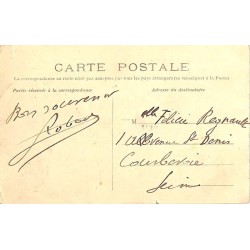 CARTE POSTALE
La correspondance au recto n'est pas acceptée par tous les pays étrangers (se renseigner à la Poste)
Partie réservée à la correspondance
Adresse du destinataire
Bon souvenir
Robert
Mlle Félicie Regnault
Avenue St Denis
Courbevoie
Seine